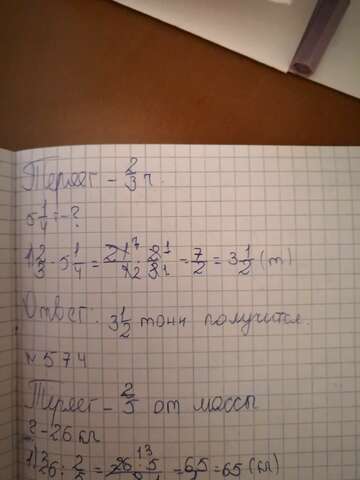 Теряет - 2/3 ч.
5 1/4 = - ?
1) 2/3 · 5 1/4 = 21/4 · 2/3 = 7/2 = 3 1/2 (т)
Ответ: 3 1/2 тонн получится.
№ 574
Теряет - 2/5 от массы
? - 26 кг
1) 26 : 2/5 = 26 · 5/2 = 65 = 65 (кг)